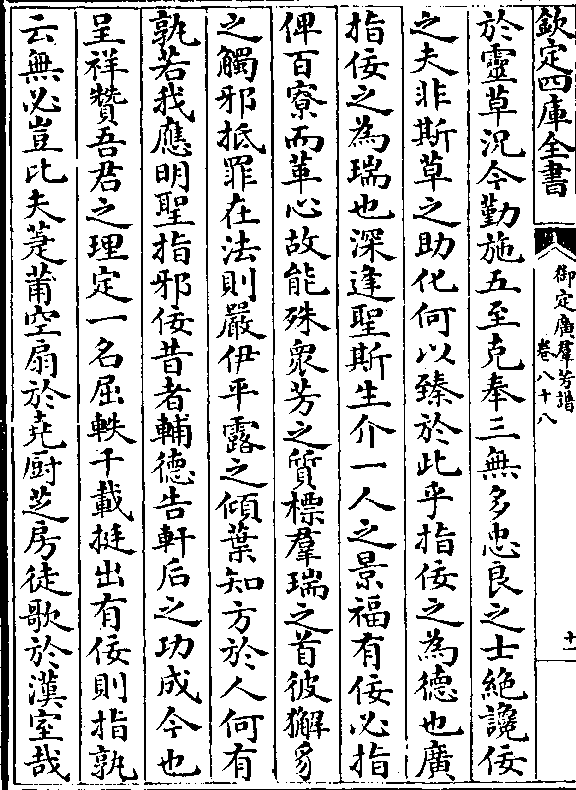 欽定四庫全書
御定廣羣芳譜
卷八十八
十一
於靈草況今勤施五至克奉三無多忠良之士絶讒佞
之夫非斯草之助化何以臻於此乎指佞之為德也廣
指佞之為瑞也深逢聖斯生介一人之景福有佞必指
俾百寮而革心故能殊衆芳之質標羣瑞之首彼獬豸
之觸邪抵罪在法則嚴伊平露之傾葉知方於人何有
孰若我應明聖指邪佞昔者輔德告軒后之功成今也
呈祥贊吾君之理定一名屈軼千載挺出有佞則指孰
云無必豈比夫萐莆空扇於堯厨芝房徒歌於漢室哉